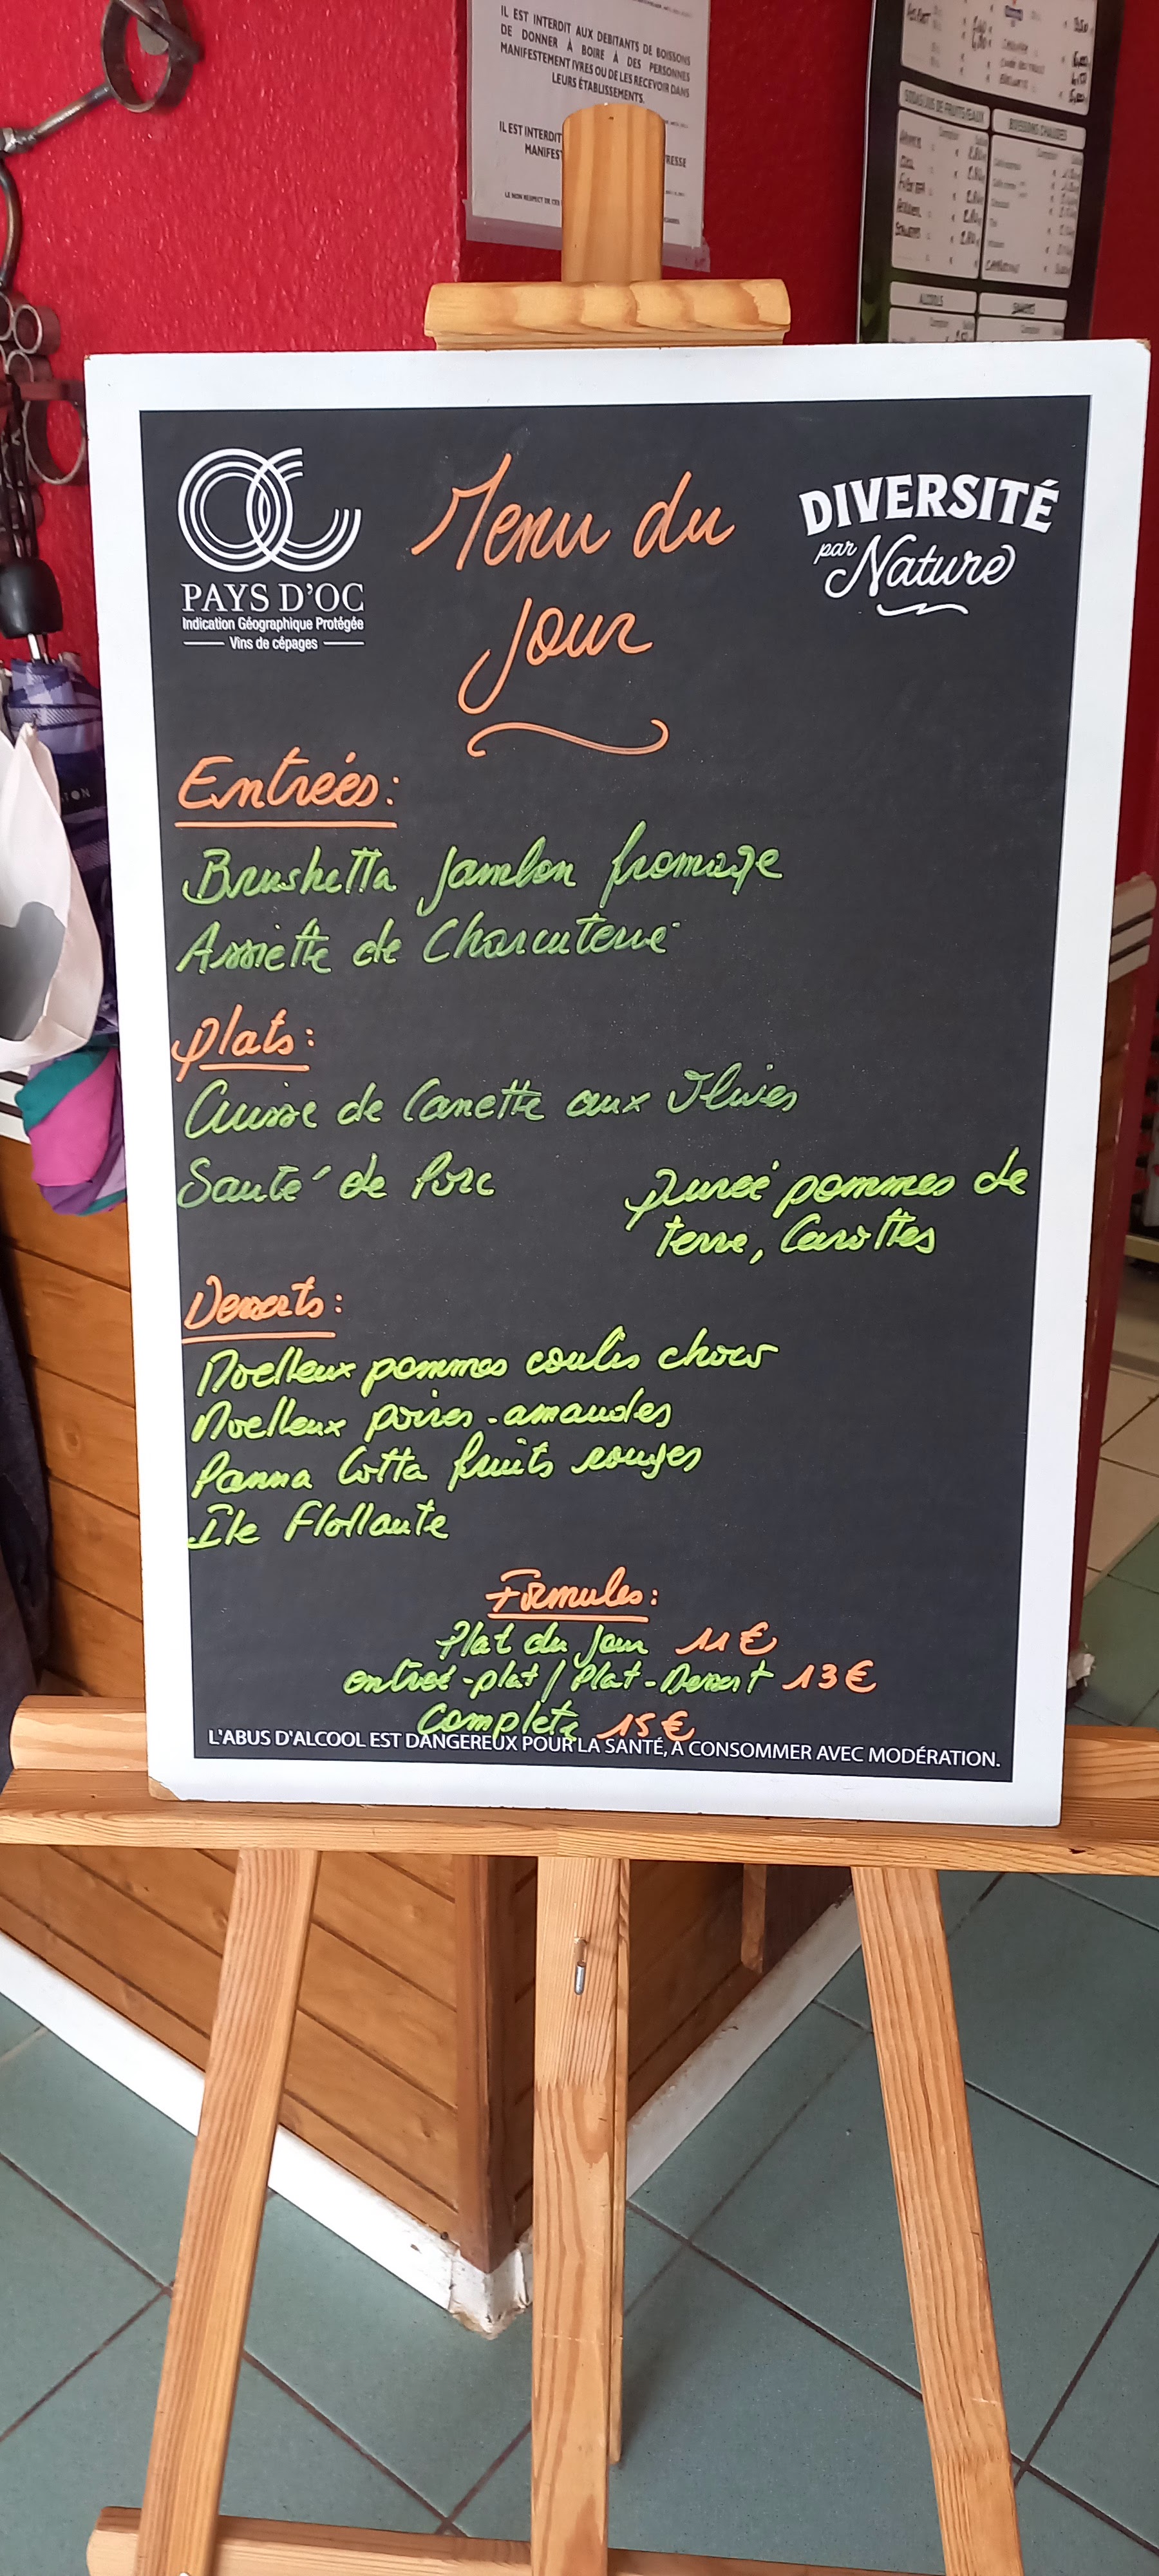 IL EST INTERDIT AUX DEBITANTS DE BOISSONS
DE DONNER À BOIRE À DES PERSONNES
MANIFESTEMENT IVRES OU DE LES RECEVOIR DANS
LEURS ÉTABLISSEMENTS.
IL EST INTERDIT
MANIFEST RESSE
LE NON RESPECT DE CES
SODAS/JUS DE FRUITS/EAUX
BOISSONS CHAUDES
ALCOOLS
PAYS D'OC
Indication Géographique Protégée
Vins de cépages
Menu du
Jour
DIVERSITÉ
par Nature
Entrées:
Brushetta Jambon fromage
Assiette de Charcuterie
plats:
Cuisse de Canette aux Olives
Sauté de Porc
purée pommes de
terre, Carottes
Desserts:
Moelleux pommes coulis choco
Moelleux poires-amandes
Panna Cotta fruits rouges
Île Flottante
Formules:
Plat du Jour 11€
entrée-plat/Plat-Dessert 13€
Complete 15€
L'ABUS D'ALCOOL EST DANGEREUX POUR LA SANTÉ, A CONSOMMER AVEC MODÉRATION.